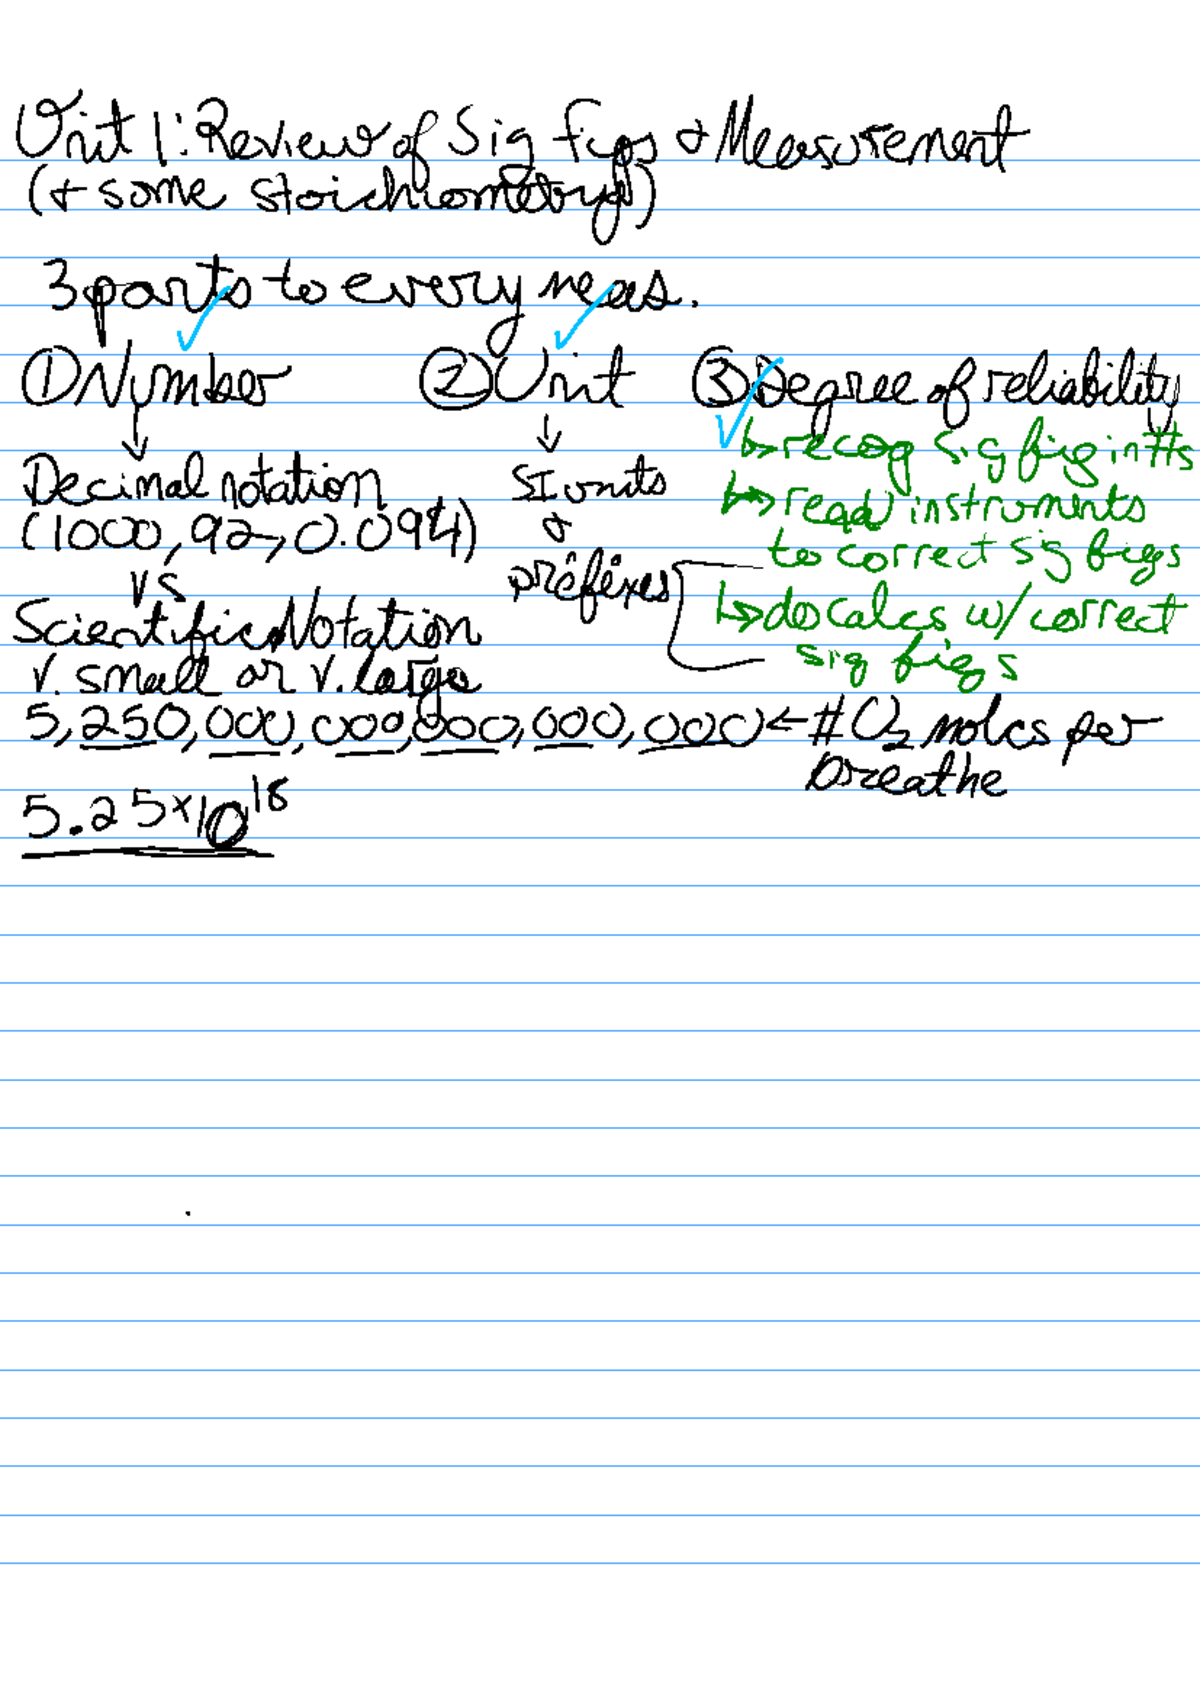 Unit 1: Review of Sig Figs & Measurement
(+ some stoichiometry!)
3 parts to every meas.
① Number ② Unit ③ Degree of reliability
↓ ↓ ↳ recog sig fig in #s
Decimal notation SI units ↳ read instruments
(1000, 92, 0.094) & to correct sig figs
vs prefixes ↳ do calcs w/ correct
Scientific Notation sig figs
v. small or v. large
5,250,000,000,000,000,000 ← # O₂ molcs per
breathe
5.25 x 10¹⁸